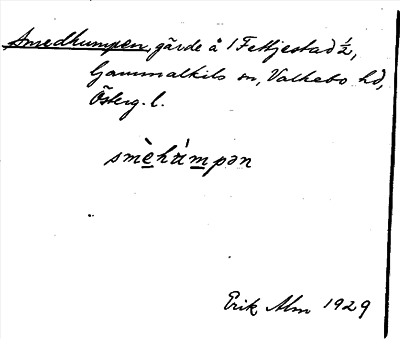 Smedkumpen, gärde å 1 Fettjestad ½,
Gammalkils sn, Valkebo hd,
Österg. l.
smèhúmpən
Erik Alm 1929